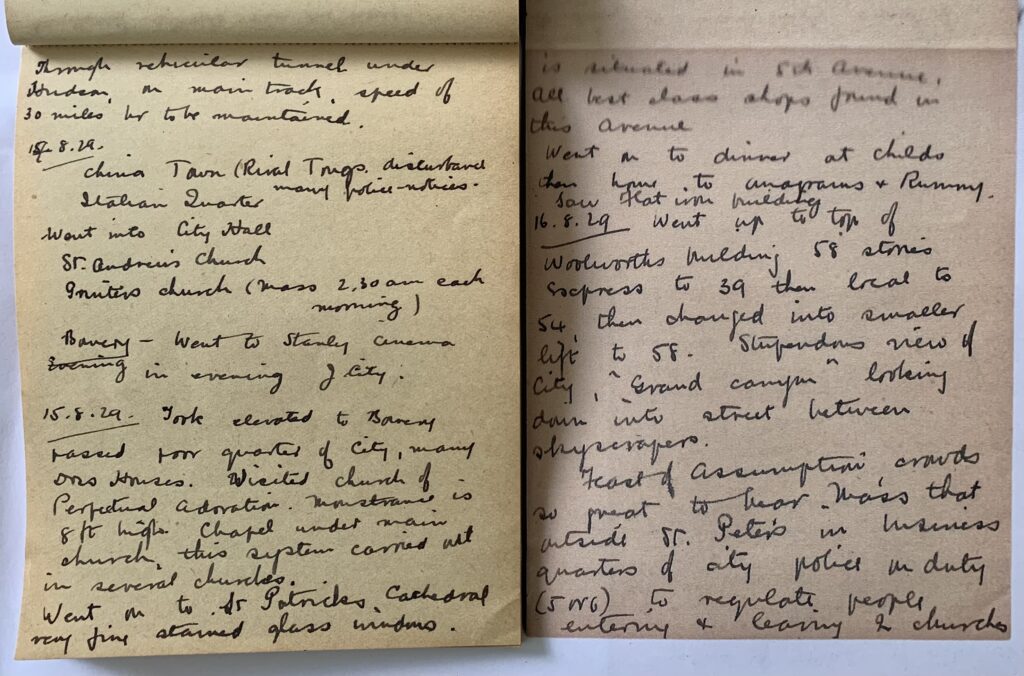 Through vehicular tunnel under
Hudson, on main track, speed of
30 miles hr to be maintained.
14.8.29.
China Town (Rival Tongs disturbance
many police-notices.
Italian Quarter
Went into City Hall
St. Andrew's Church
Printers church (Mass 2.30 am each
morning)
Bowery – Went to Stanley cinema
Evening in evening J City.
15.8.29. Took elevated to Bowery
passed poor quarter of City, many
Doss Houses. Visited church of
Perpetual Adoration. Monstrance is
8 ft high. Chapel under main
church, this system carried out
in several churches.
Went on to St Patricks Cathedral
very fine stained glass windows.
is situated in 5th Avenue,
All best class shops found in
this Avenue
Went on to dinner at Childs
then home to anagrams & Rummy.
Saw Flat iron building
16.8.29 Went up to top of
Woolworths building 58 stories
Express to 39 then local to
54, then changed into smaller
lift to 58. Stupendous view of
City, "Grand canyon" looking
down into street between
skyscrapers.
Feast of Assumption crowds
so great to hear Mass that
outside St. Peter's in business
quarters of city police on duty
(5 or 6) to regulate people
entering & leaving 2 churches